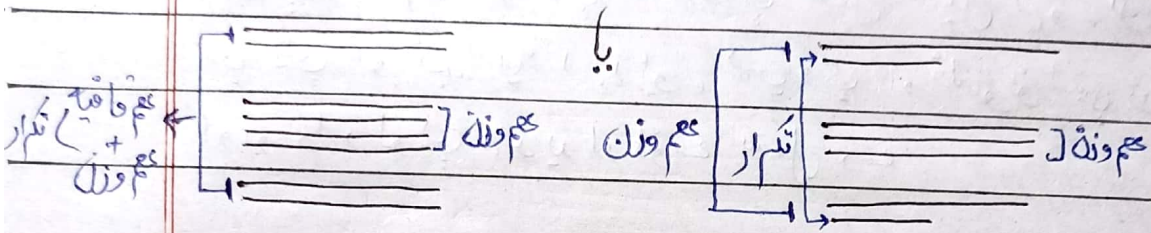 یا
هم‌وزن
تکرار
هم‌وزن
هم‌وزن
هم‌قافیه
+
هم‌وزن
تکرار